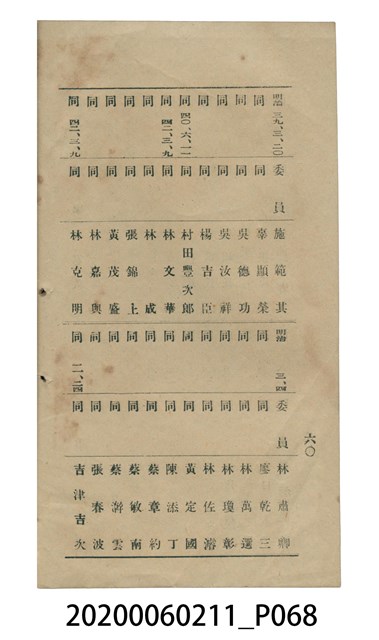 六〇
明治三九、三、二〇 委員 施範其
同 同 辜顯榮
同 同 吳德功
同 同 吳汝祥
同 同 楊吉臣
同 四〇、六、二一 同 村田豐次郎
同 四二、三、九 同 林文華
同 同 林 成
同 同 張錦上
同 同 黃茂盛
同 同 林嘉興
同 四二、三、九 同 林克明
明治 三、四 委員 林肅
同 同 廖乾三
同 同 林萬選
同 同 林瓊彰
同 同 林佐濬
同 同 黃定國
同 同 陳添丁
同 同 蔡章約
同 同 蔡敏南
同 同 蔡 雲
同 同 張春波
同 二、二四 同 吉津吉次
20200060211_P068